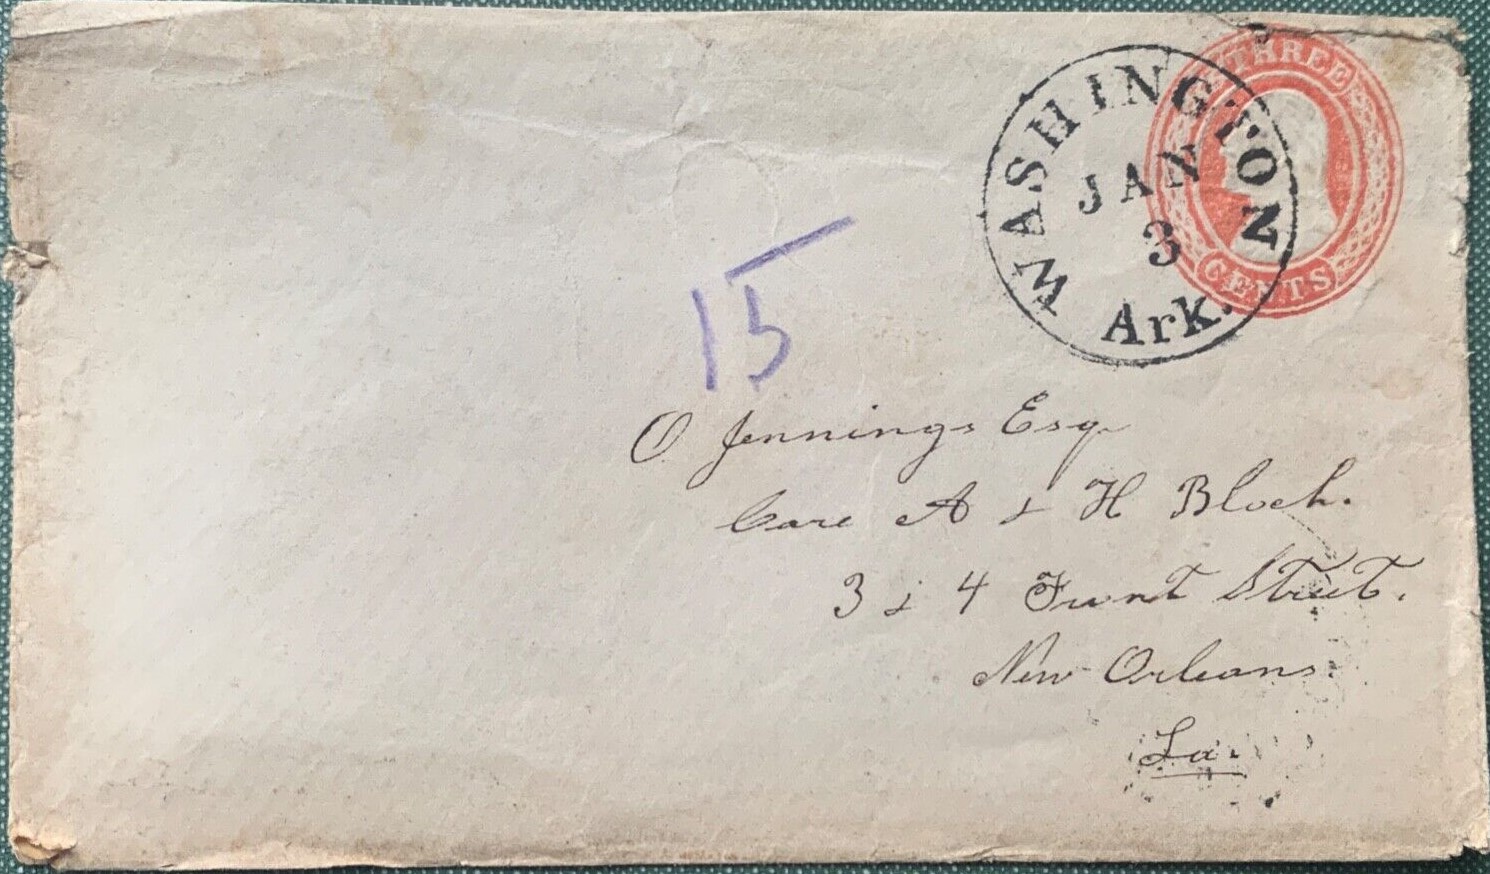 THREE
CENTS
WASHINGTON
JAN
3
Ark.
15
O Jennings Esq
Care A & H Bloch.
3 & 4 Front Street.
New Orleans.
La.